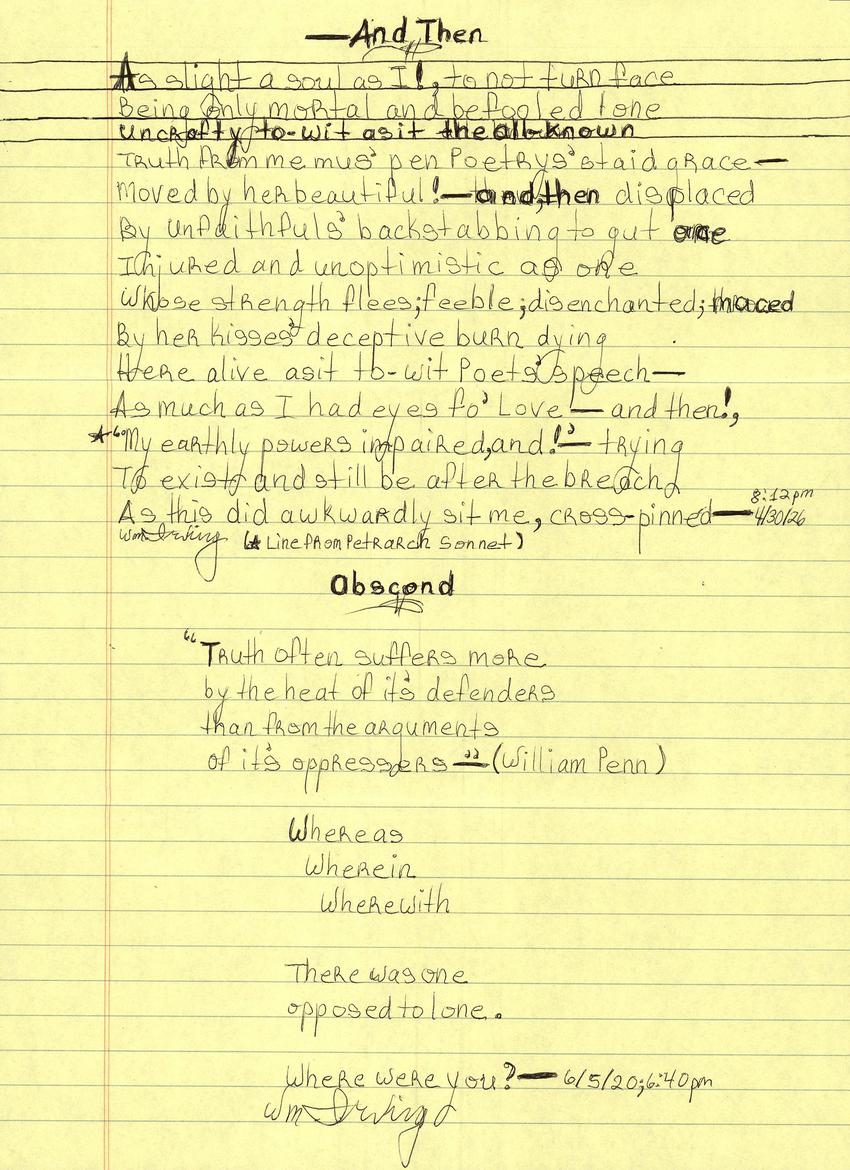 —And Then
As slight a soul as I!, to not turn face
Being only mortal and befooled tone
uncrafty to-wit asit the all-known
Truth from me mus' pen Poetrys' staid grace—
Moved by her beautiful!—and, then displaced
By unfaithfuls' backstabbing to gut one
Injured and unoptimistic as one
Whose strength flees; feeble; disenchanted; maced
By her kisses' deceptive burn dying
Here alive asit to-wit Poets' speech—
As much as I had eyes fo' Love — and then!,
★"My earthly powers impaired, and!"— trying
To exist and still be after the breach
As this did awkwardly sit me, cross-pinned— 8:12pm
4/30/26
Wm Irving (★ Line from Petrarch Sonnet)
Obscond
"Truth often suffers more
by the heat of it's defenders
than from the arguments
of it's oppressers"—(William Penn)
Whereas
Wherein
Wherewith
There was one
opposed to lone.
Where were you?— 6/5/20; 6:40pm
Wm Irving